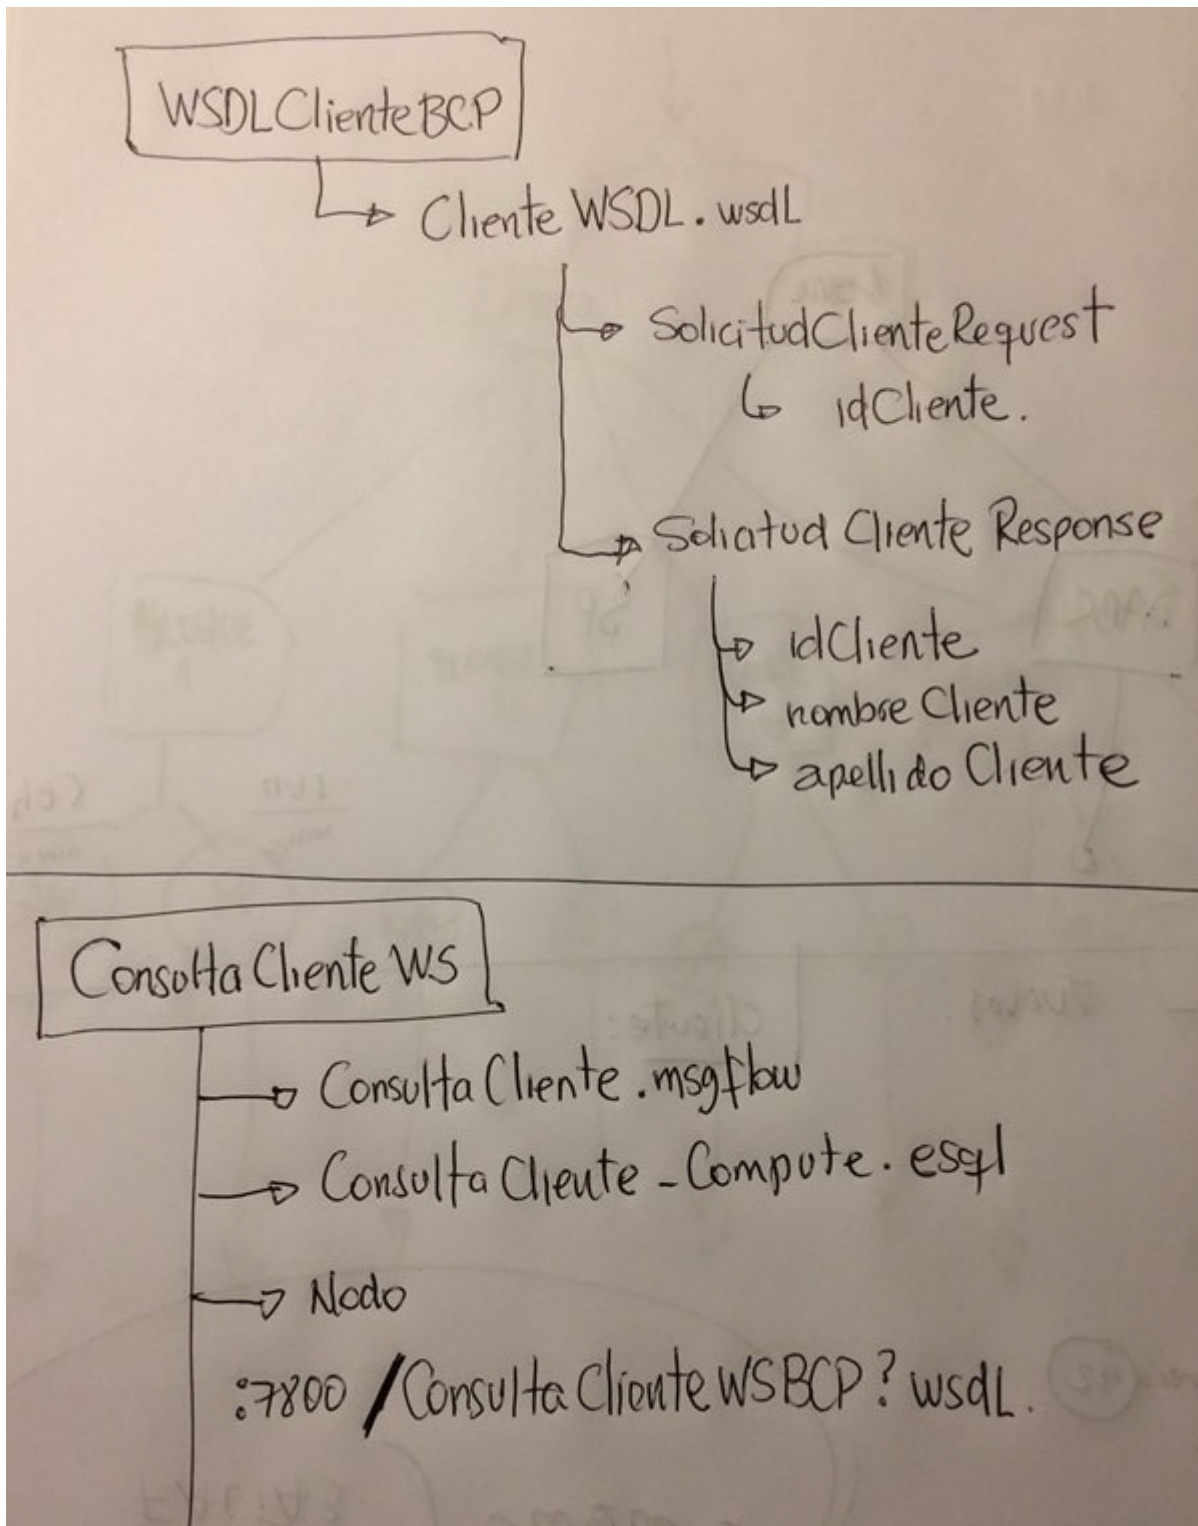 WSDLClienteBCP
Cliente WSDL.wsdL
SolicitudClienteRequest
idCliente.
Solicitud Cliente Response
idCliente
nombre Cliente
apellido Cliente
Consulta Cliente WS
Consulta Cliente.msgflow
Consulta Cliente_Compute.esql
Nodo
:7800 /Consulta Cliente WSBCP?wsdL.